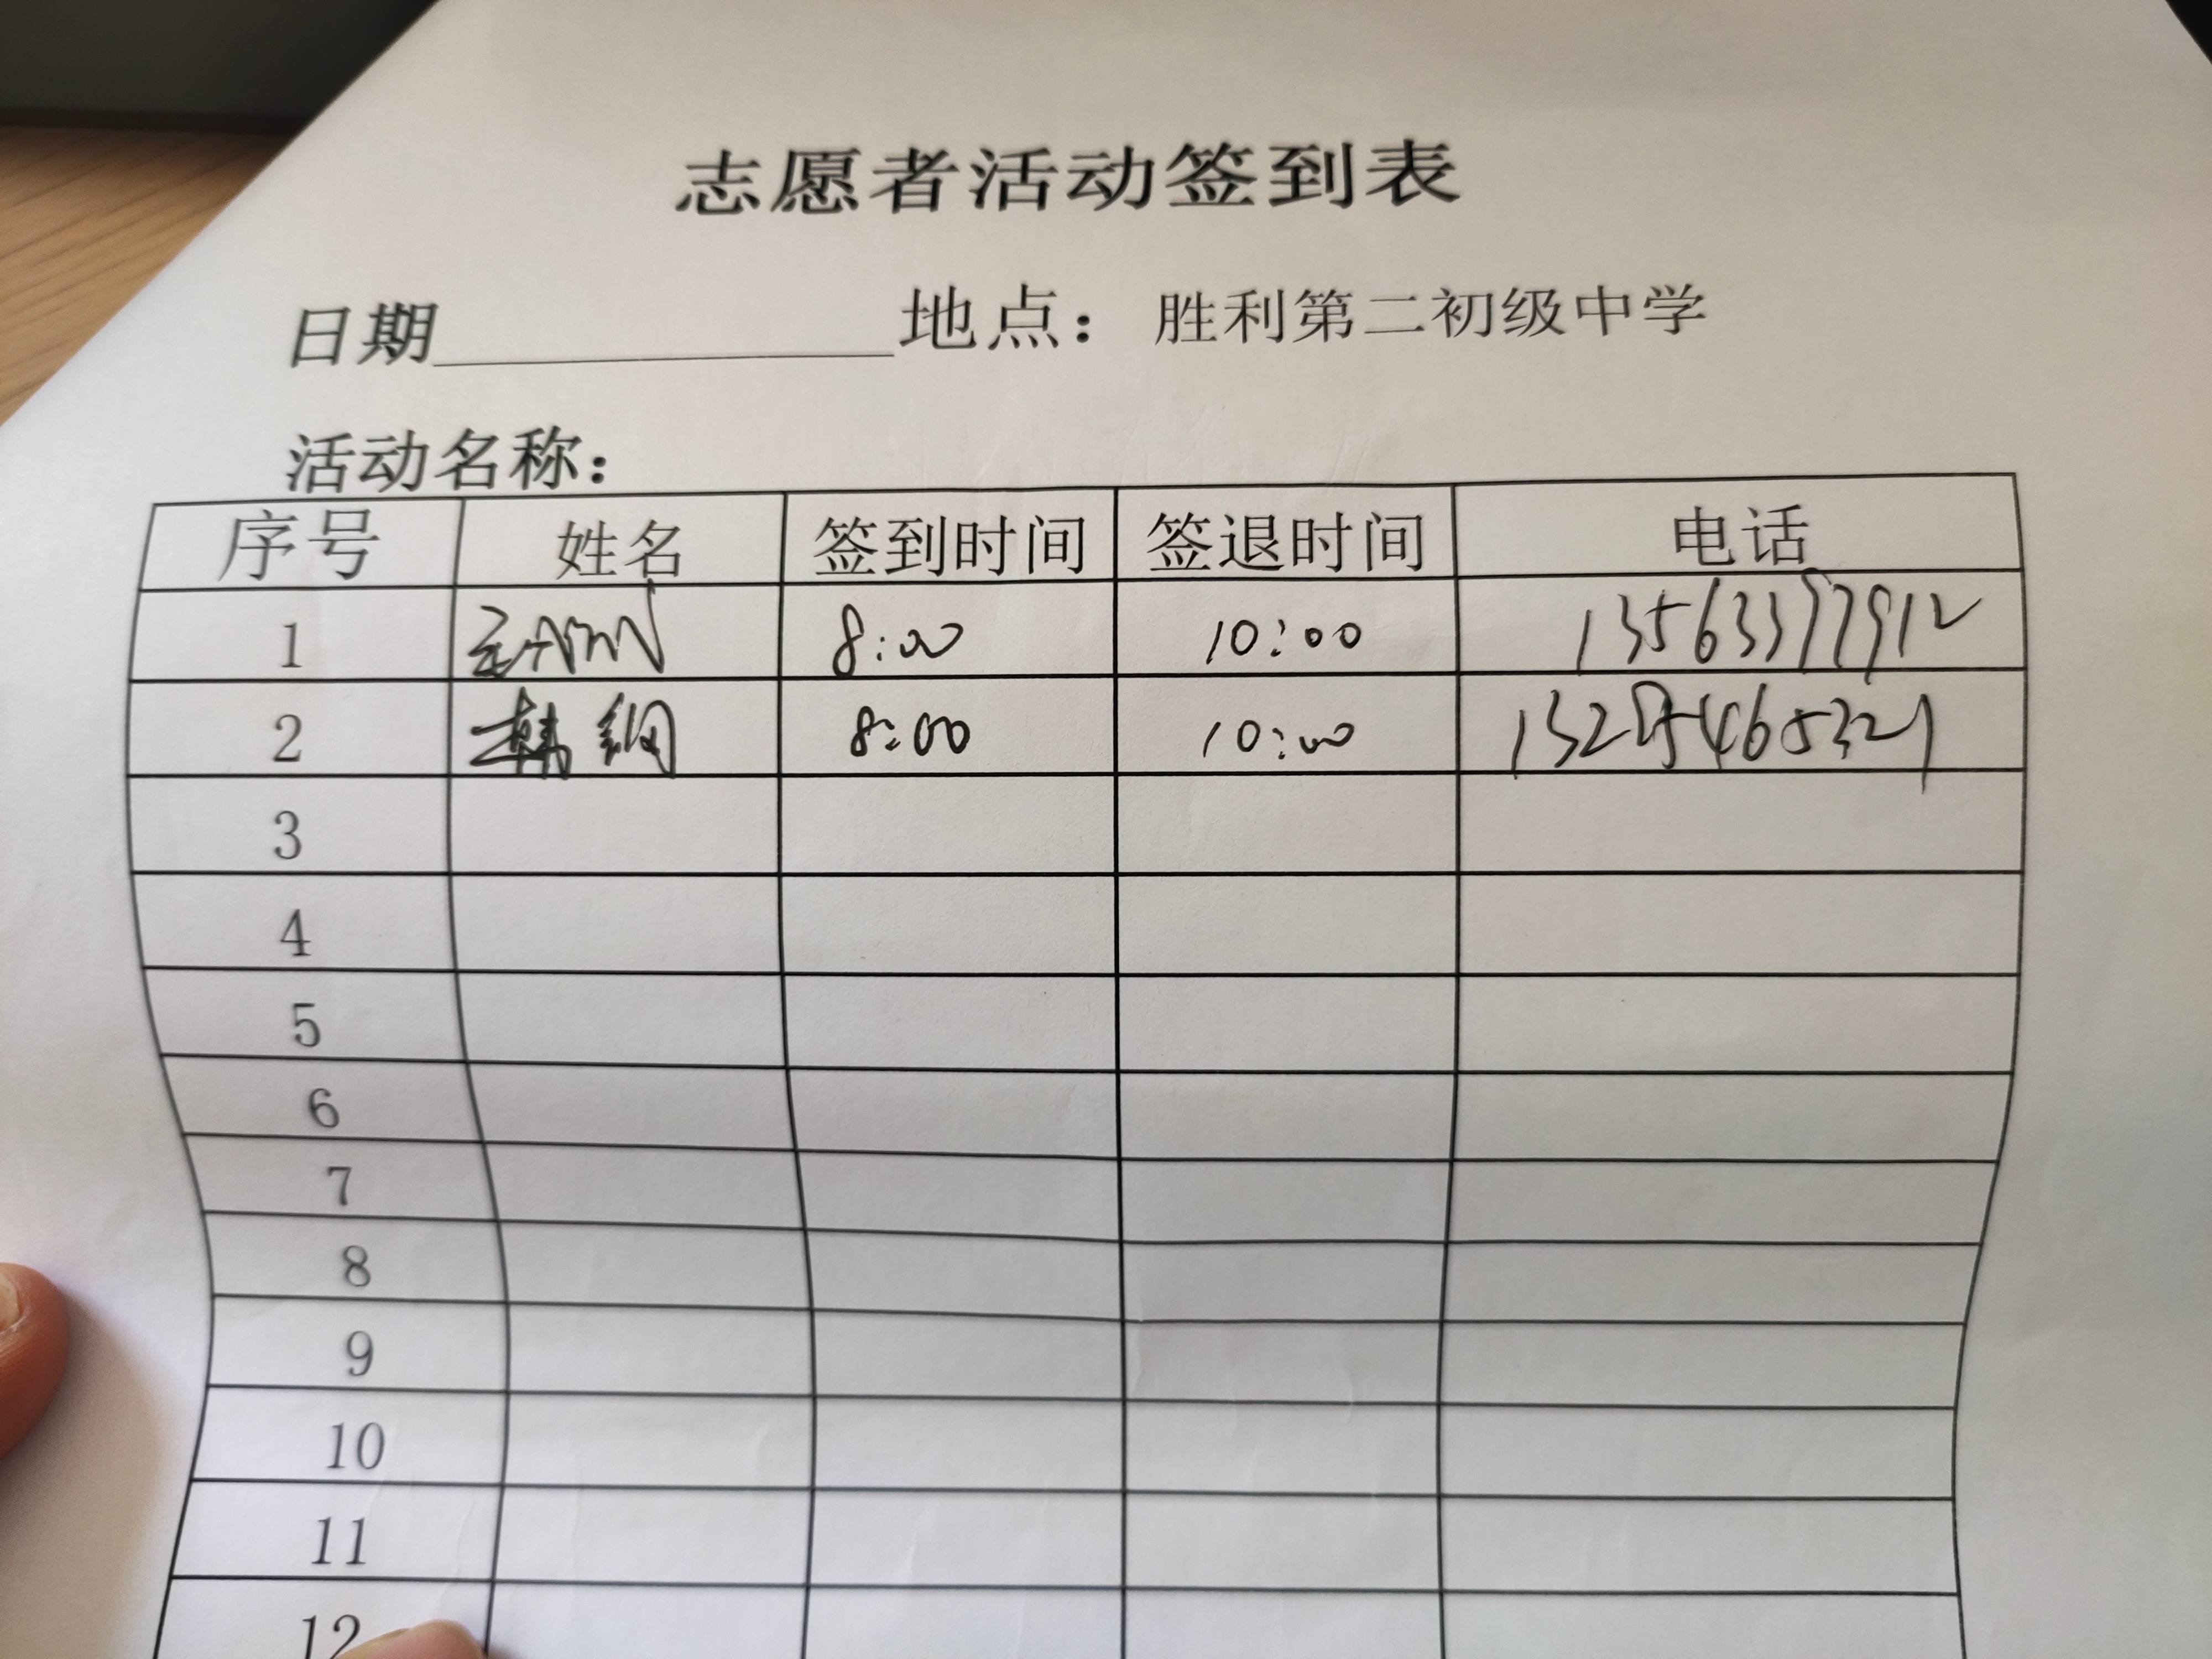 志愿者活动签到表
日期 地点：胜利第二初级中学
活动名称：
序号 姓名 签到时间 签退时间 电话
1 8:00 10:00 13563377912
2 韩钢 8:00 10:00
3
4
5
6
7
8
9
10
11
12